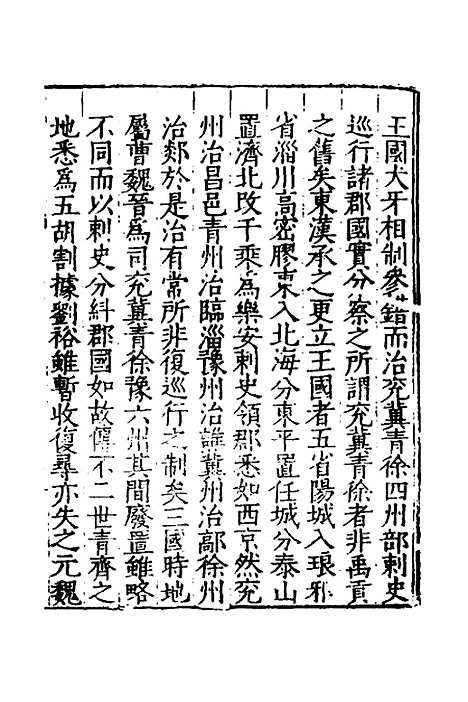 王國犬牙相制參錯而治兖冀青徐四州部刺史
巡行諸郡國實分察之所謂兖冀青徐者非禹貢
之舊矣東漢承之更立王國者五省陽城入琅邪
省淄川高密膠東入北海分東平置任城分泰山
置濟北改千乘為樂安刺史領郡悉如西京然兖
州治昌邑青州治臨淄豫州治譙冀州治鄗徐州
治郯於是治有常所非復巡行之制矣三國時地
屬曹魏晉為司兖冀青徐豫六州其間廢置雖略
不同而以刺史分糾郡國如故僞不二世青齊之
地悉為五胡割據劉裕雖暫收復尋亦失之元魏